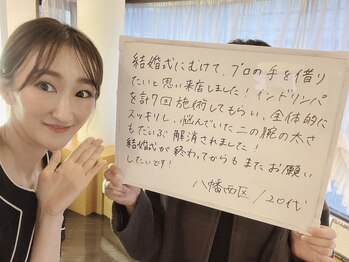 結婚式にむけて、プロの手を借り
たいと思い来店しました！インドリンパ
を計7回施術してもらい、全体的に
スッキリし、悩んでいた二の腕の太さ
もだいぶ解消されました！
結婚式が終わってからもまたお願い
したいです！
八幡西区/20代